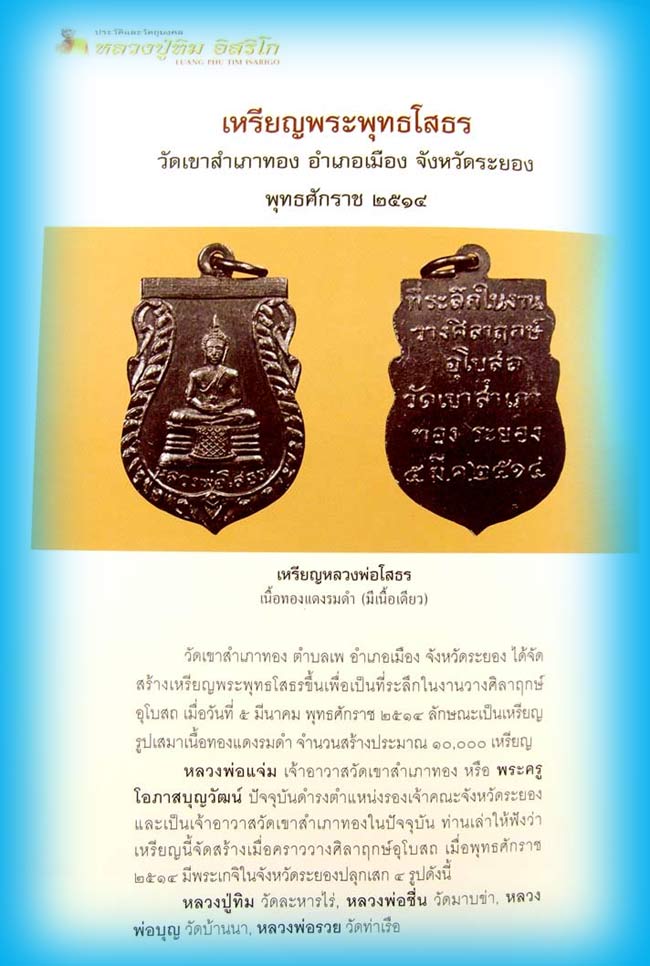 ประวัติและวัตถุมงคล
หลวงปู่ทิม อิสริโก
LUANG PHU TIM ISARIGO
เหรียญพระพุทธโสธร
วัดเขาสำเภาทอง อำเภอเมือง จังหวัดระยอง
พุทธศักราช ๒๕๑๔
หลวงพ่อโสธร
ที่ระลึกในงาน
วางศิลาฤกษ์
อุโบสถ
วัดเขาสำเภา
ทอง ระยอง
๕ มี.ค. ๒๕๑๔
เหรียญหลวงพ่อโสธร
เนื้อทองแดงรมดำ (มีเนื้อเดียว)
วัดเขาสำเภาทอง ตำบลเพ อำเภอเมือง จังหวัดระยอง ได้จัด
สร้างเหรียญพระพุทธโสธรขึ้นเพื่อเป็นที่ระลึกในงานวางศิลาฤกษ์
อุโบสถ เมื่อวันที่ ๕ มีนาคม พุทธศักราช ๒๕๑๔ ลักษณะเป็นเหรียญ
รูปเสมาเนื้อทองแดงรมดำ จำนวนสร้างประมาณ ๑๐,๐๐๐ เหรียญ
หลวงพ่อแจ่ม เจ้าอาวาสวัดเขาสำเภาทอง หรือ พระครู
โอภาสบุญวัฒน์ ปัจจุบันดำรงตำแหน่งรองเจ้าคณะจังหวัดระยอง
และเป็นเจ้าอาวาสวัดเขาสำเภาทองในปัจจุบัน ท่านเล่าให้ฟังว่า
เหรียญนี้จัดสร้างเมื่อคราววางศิลาฤกษ์อุโบสถ เมื่อพุทธศักราช
๒๕๑๔ มีพระเกจิในจังหวัดระยองปลุกเสก ๔ รูปดังนี้
หลวงปู่ทิม วัดละหารไร่, หลวงพ่อชื่น วัดมาบข่า, หลวง
พ่อบุญ วัดบ้านนา, หลวงพ่อรวย วัดท่าเรือ